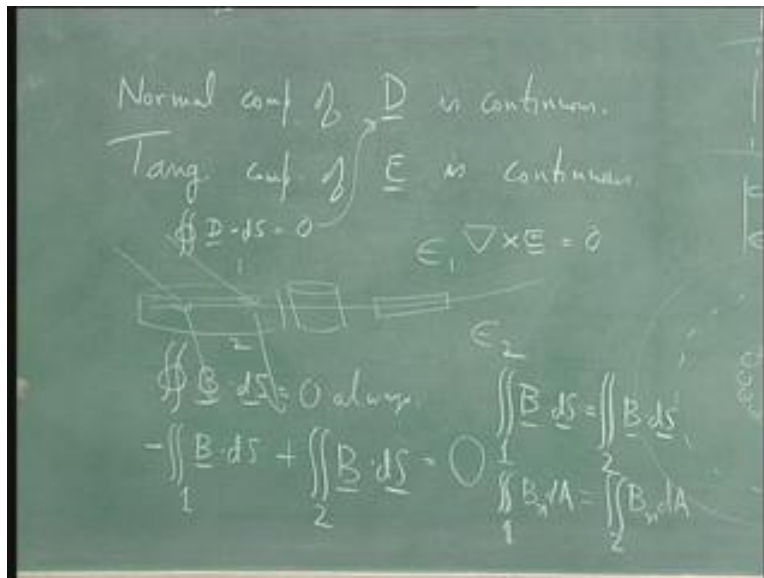 Normal comp of D is continuous.
Tang comp. of E is continuous
∯ D·dS = 0
ϵ1 ∇×E = 0
1
2
ϵ2
∯ B·dS = 0 always.
∬1 B·dS = ∬2 B·dS
-∬1 B·dS + ∬2 B·dS = 0
∬1 Bn dA = ∬2 Bn dA